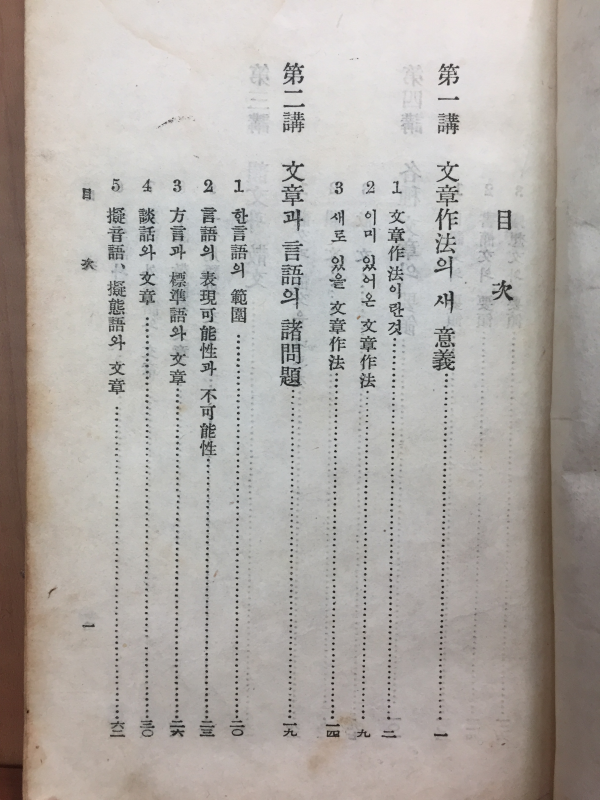 目次
第一講 文章作法의 새 意義……一
1 文章作法이란것……二
2 이미 있어온 文章作法……九
3 새로 있을 文章作法……一四
第二講 文章과 言語의 諸問題……一九
1 한言語의 範圍……二〇
2 言語의 表現可能性과 不可能性……二三
3 方言과 標準語와 文章……二六
4 談話와 文章……三〇
5 擬音語、擬態語와 文章……六二
目次 一